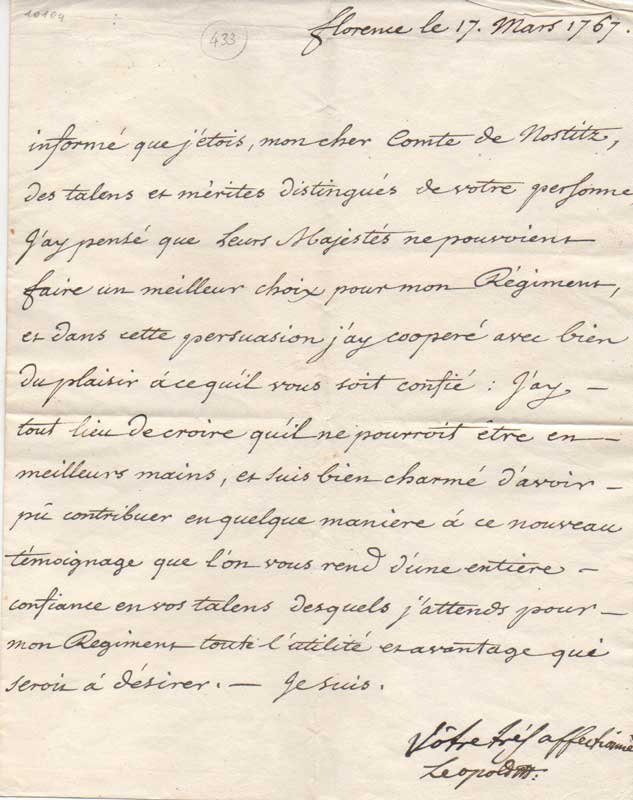 10104
433
florence le 17. Mars 1767.
informé que j'étois, mon cher Comte de Nostitz,
des talens et mérites distingués de votre personne
J'ay pensé que Leurs Majestés ne pouvoient
faire un meilleur choix pour mon Régiment,
et dans cette persuasion j'ay cooperé avec bien
du plaisir á ce qu'il vous soit confié : J'ay —
tout lieu de croire qu'il ne pourroit être en —
meilleurs mains, et suis bien charmé d'avoir —
pû contribuer en quelque maniére á ce nouveau
témoignage que l'on vous rend d'une entiére —
confiance en vos talens desquels j'attends pour —
mon Regiment toute l'utilité et avantage qui
seroit á désirer. — Je suis.
Vôtre trés affectionné
Leopold